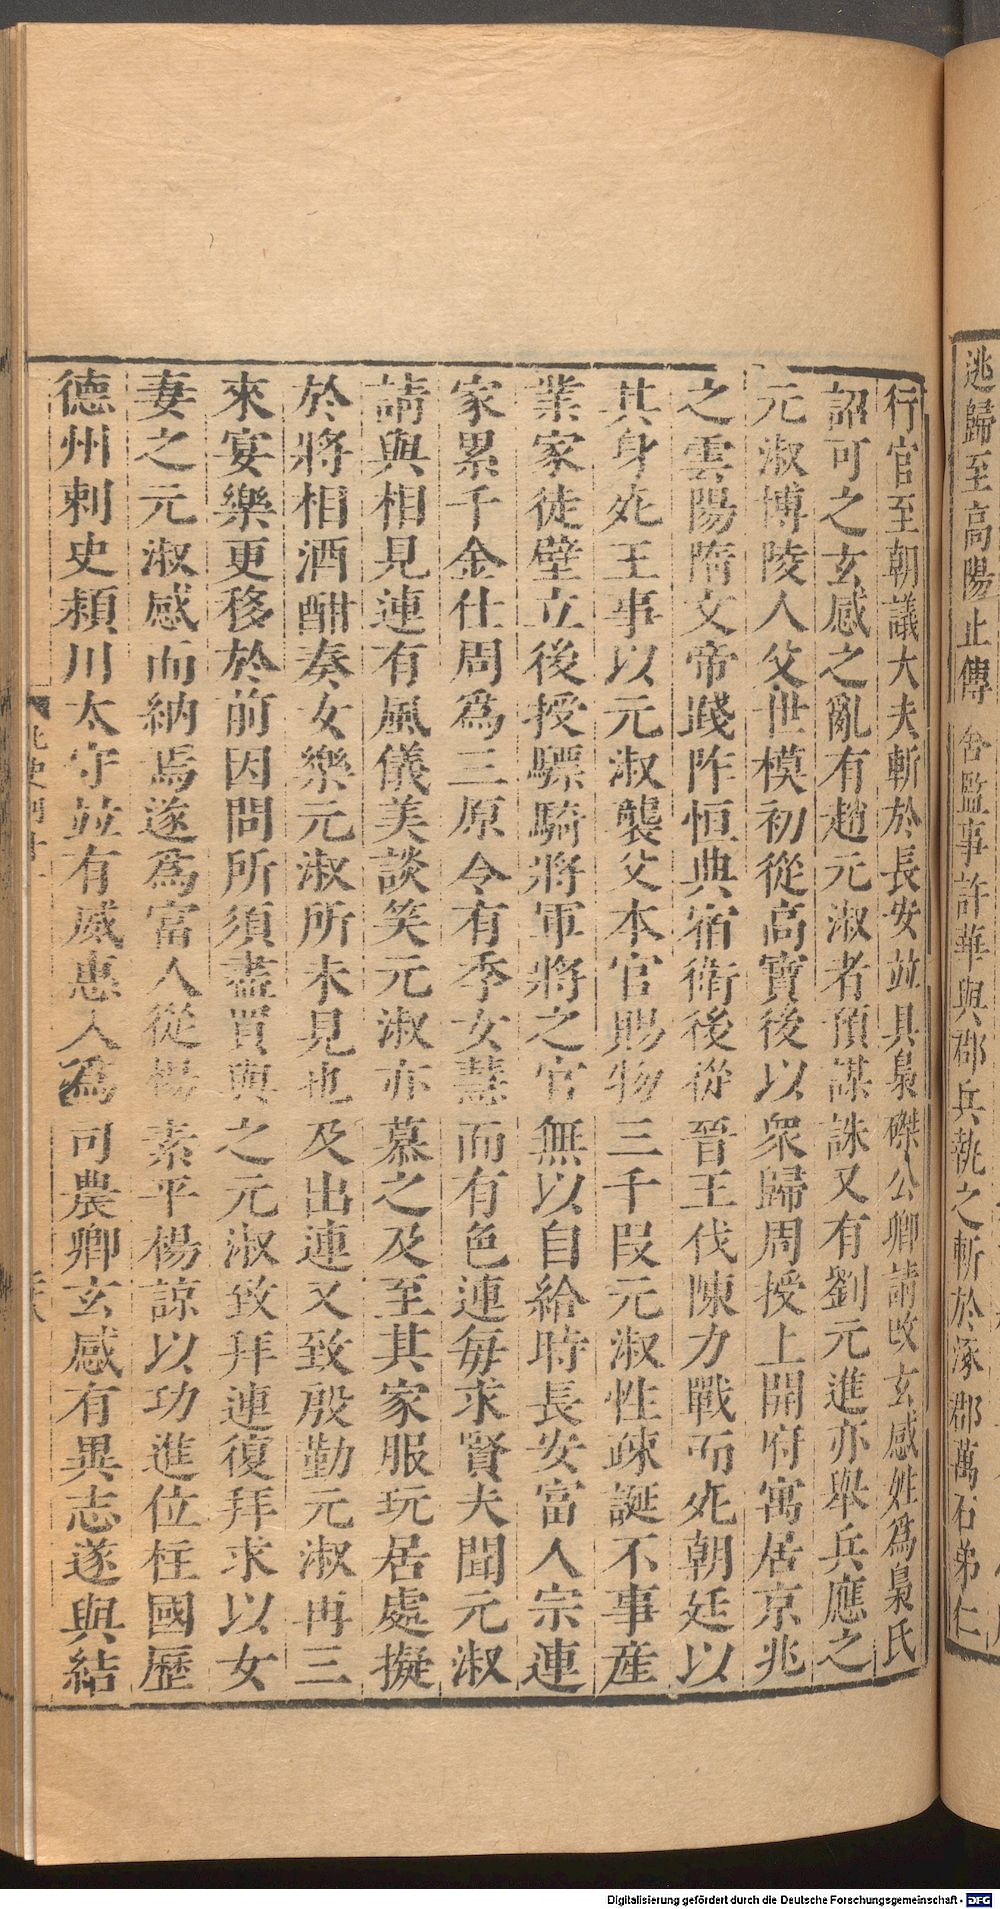 逃歸至高陽止傳舍監事許華與郡兵執之斬於涿郡萬石弟仁
行官至朝議大夫斬於長安並具梟磔公卿請改玄感姓為梟氏
詔可之玄感之亂有趙元淑者預謀誅又有劉元進亦舉兵應之
元淑博陵人父世模初從高寶後以衆歸周授上開府寓居京兆
之雲陽隋文帝踐阼恒典宿衛後從晉王伐陳力戰而死朝廷以
其身死王事以元淑襲父本官賜物三千段元淑性疎誕不事産
業家徒壁立後授驃騎將軍將之官無以自給時長安富人宗連
家累千金仕周爲三原令有季女慧而有色連每求賢夫聞元淑
請與相見連有風儀美談笑元淑亦慕之及至其家服玩居處擬
於將相酒酣奏女樂元淑所未見也及出連又致殷勤元淑再三
來宴樂更移於前因問所須盡買與之元淑致拜連復拜求以女
妻之元淑感而納焉遂爲富人從楊素平楊諒以功進位柱國歷
德州刺史潁川太守並有威惠入爲司農卿玄感有異志遂與結
Digitalisierung gefördert durch die Deutsche Forschungsgemeinschaft - DFG